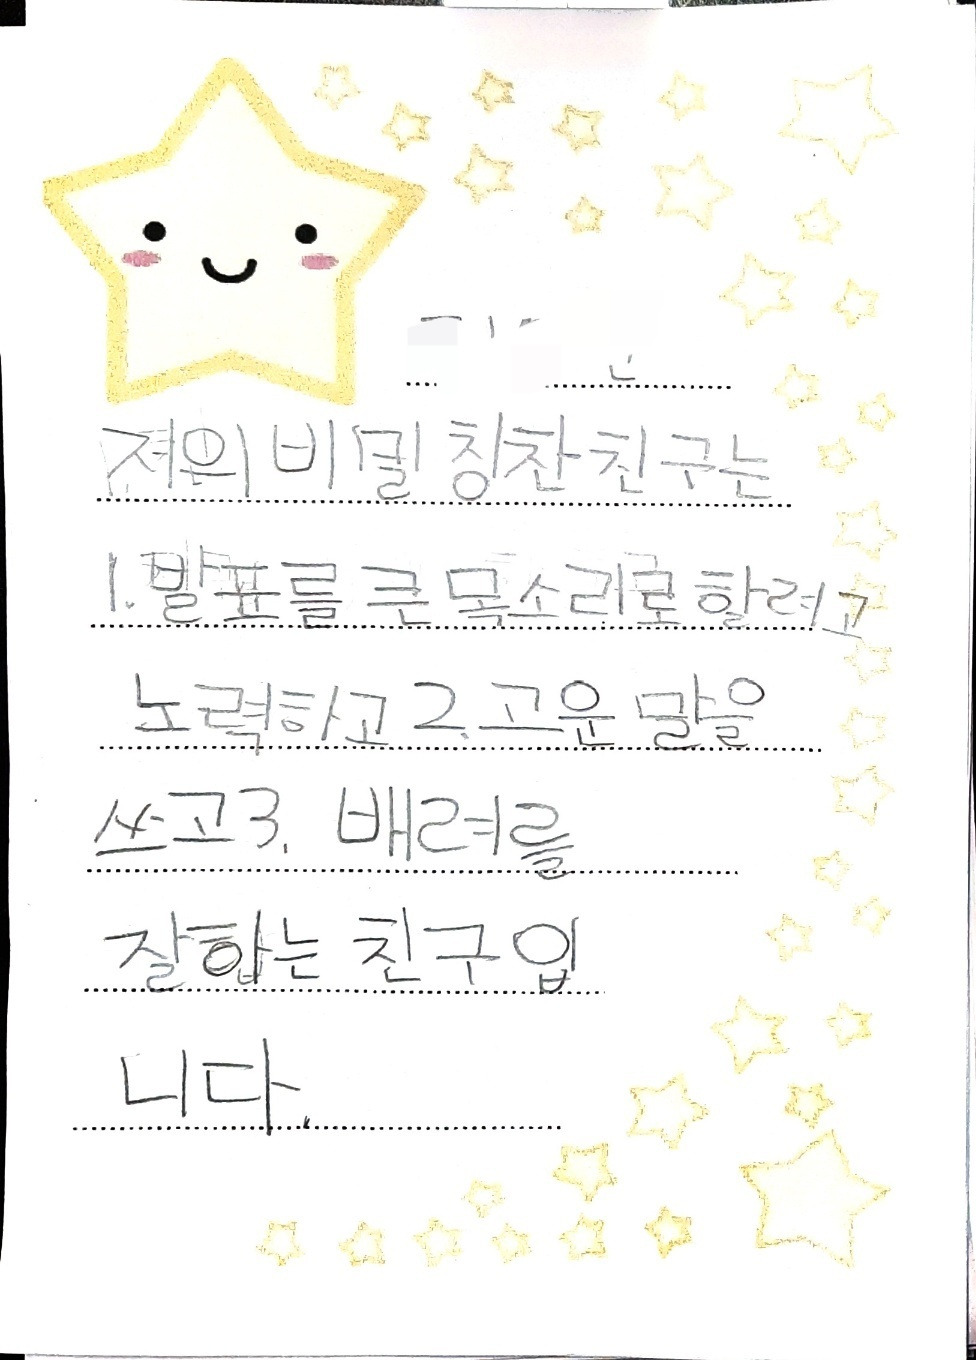 저의 비밀 칭찬 친구는
1. 발표를 큰 목소리로 할려고
노력하고 2. 고운 말을
쓰고 3. 배려를
잘하는 친구입
니다.